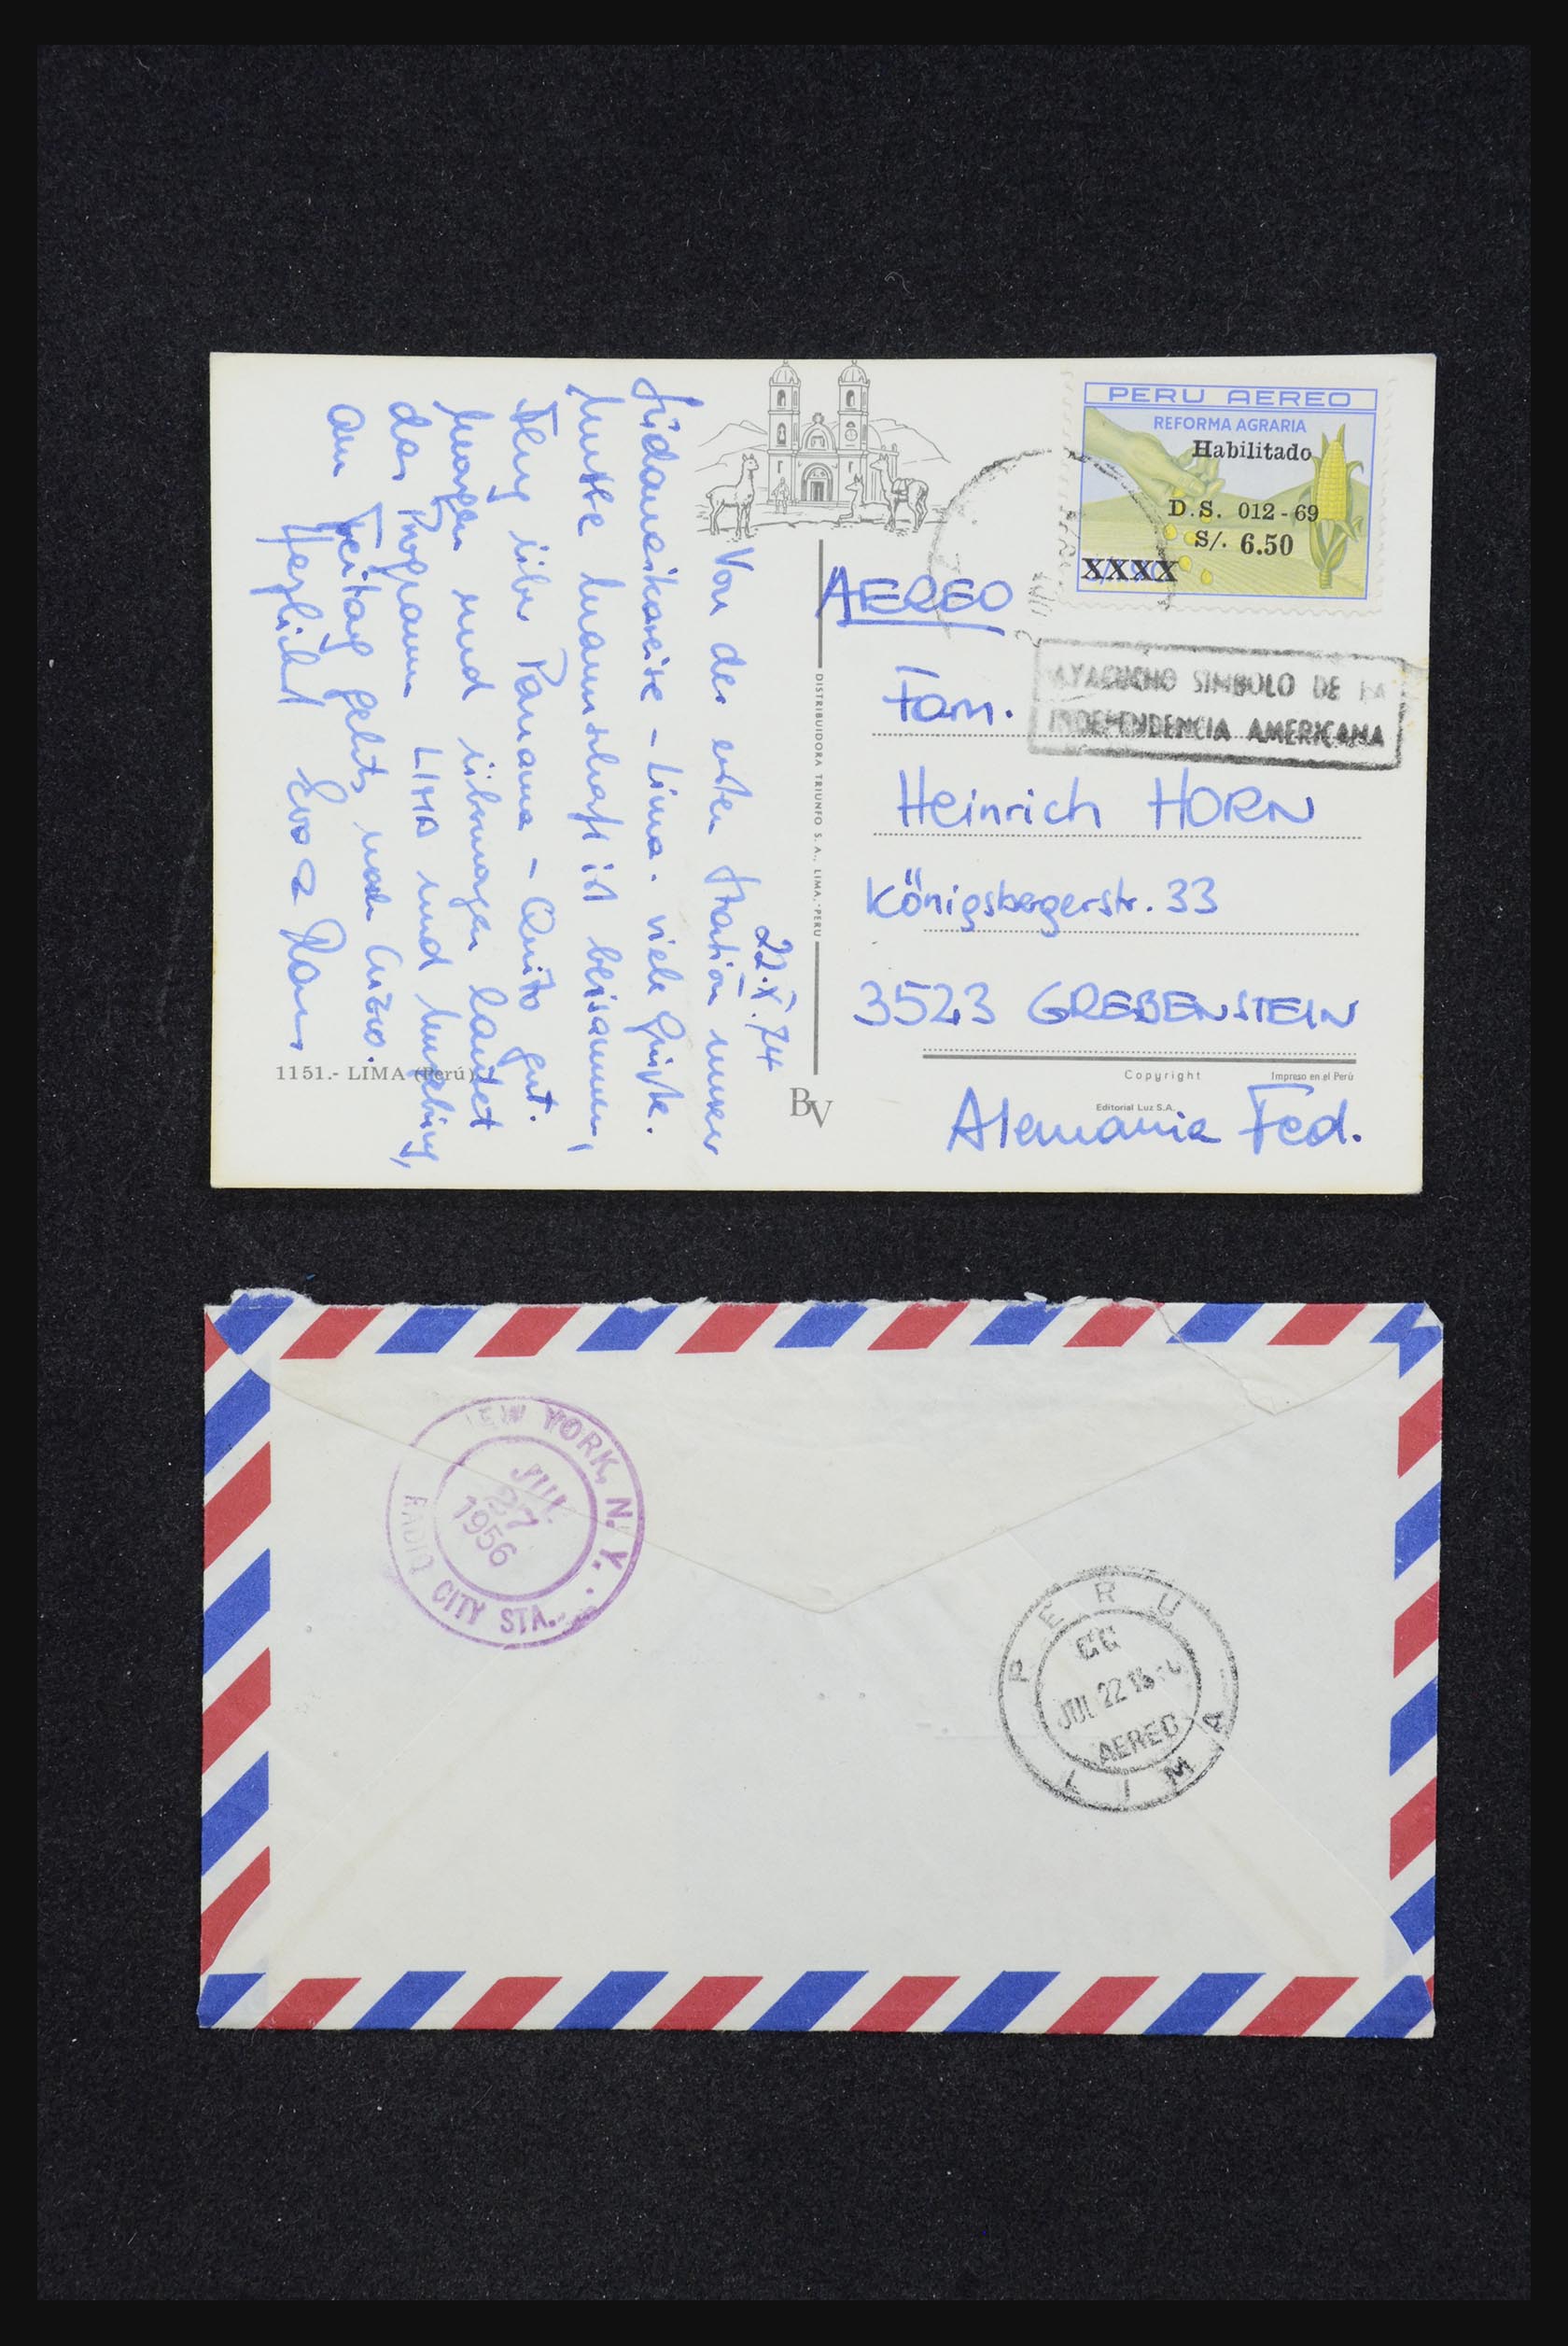 PERU AEREO
REFORMA AGRARIA
Habilitado
D.S. 012-69
S/. 6.50
XXXX
AEREO
AYACUCHO SIMBOLO DE LA
INDEPENDENCIA AMERICANA
Fam.
Heinrich HORN
Königsbergerstr. 33
3523 GREBENSTEIN
Alemania Fed.
Copyright
Impreso en el Perú
Editorial Luz S.A.
DISTRIBUIDORA TRIUNFO S. A., LIMA,-PERU
BV
22.X.74
Von der ersten Station unserer
Südamerikareise - Lima. viele Grüße.
Unsere Mannschaft ist beisammen,
Flug über Panama - Quito gut.
Morgen und übermorgen lautet
das Programm LIMA und Umgebung,
am Freitag gehts nach Cuzco.
Herzlichst Eva
1151.- LIMA (Perú)
NEW YORK, N.Y.
JUL
27
1956
RADIO CITY STA.
PERU
JUL 22
AEREO
LIMA